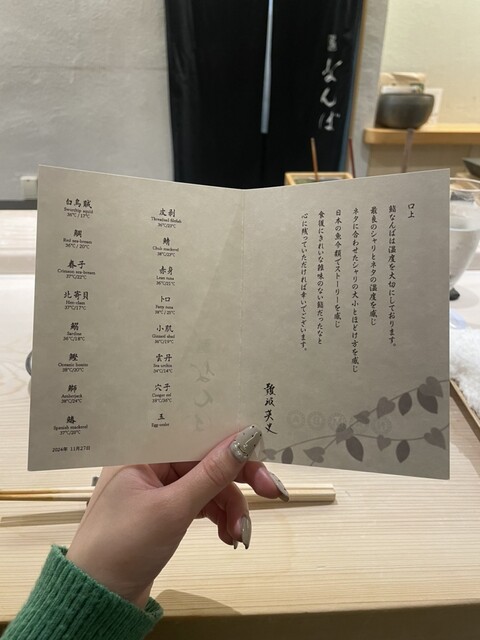 口上
鮨なんばは温度を大切にしております。
最良のシャリとネタの温度を感じ
ネタに合わせたシャリの大小とほどけ方を感じ
日本の魚介類でストーリーを感じ
食後にきれいな雑味のない鮨だったなと
心に残っていただければ幸いでございます。
難波英史
白烏賊
Swordtip squid
39℃ / 17℃
鯛
Red sea bream
36℃ / 20℃
春子
Crimson sea bream
37℃/22℃
北寄貝
Hen clam
37℃/17℃
鰯
Sardine
36℃/18℃
鰹
Oceanic bonito
鰤
Amberjack
38℃/24℃
鰆
Spanish mackerel
37℃/25℃
2024年 11月27日
皮剥
Threadsail filefish
鯖
Chub mackerel
赤身
Lean tuna
トロ
Fatty tuna
小肌
Gizzard shad
36℃/19℃
雲丹
Sea urchin
36℃/14℃
穴子
Conger eel
玉
Egg omlet
なんば